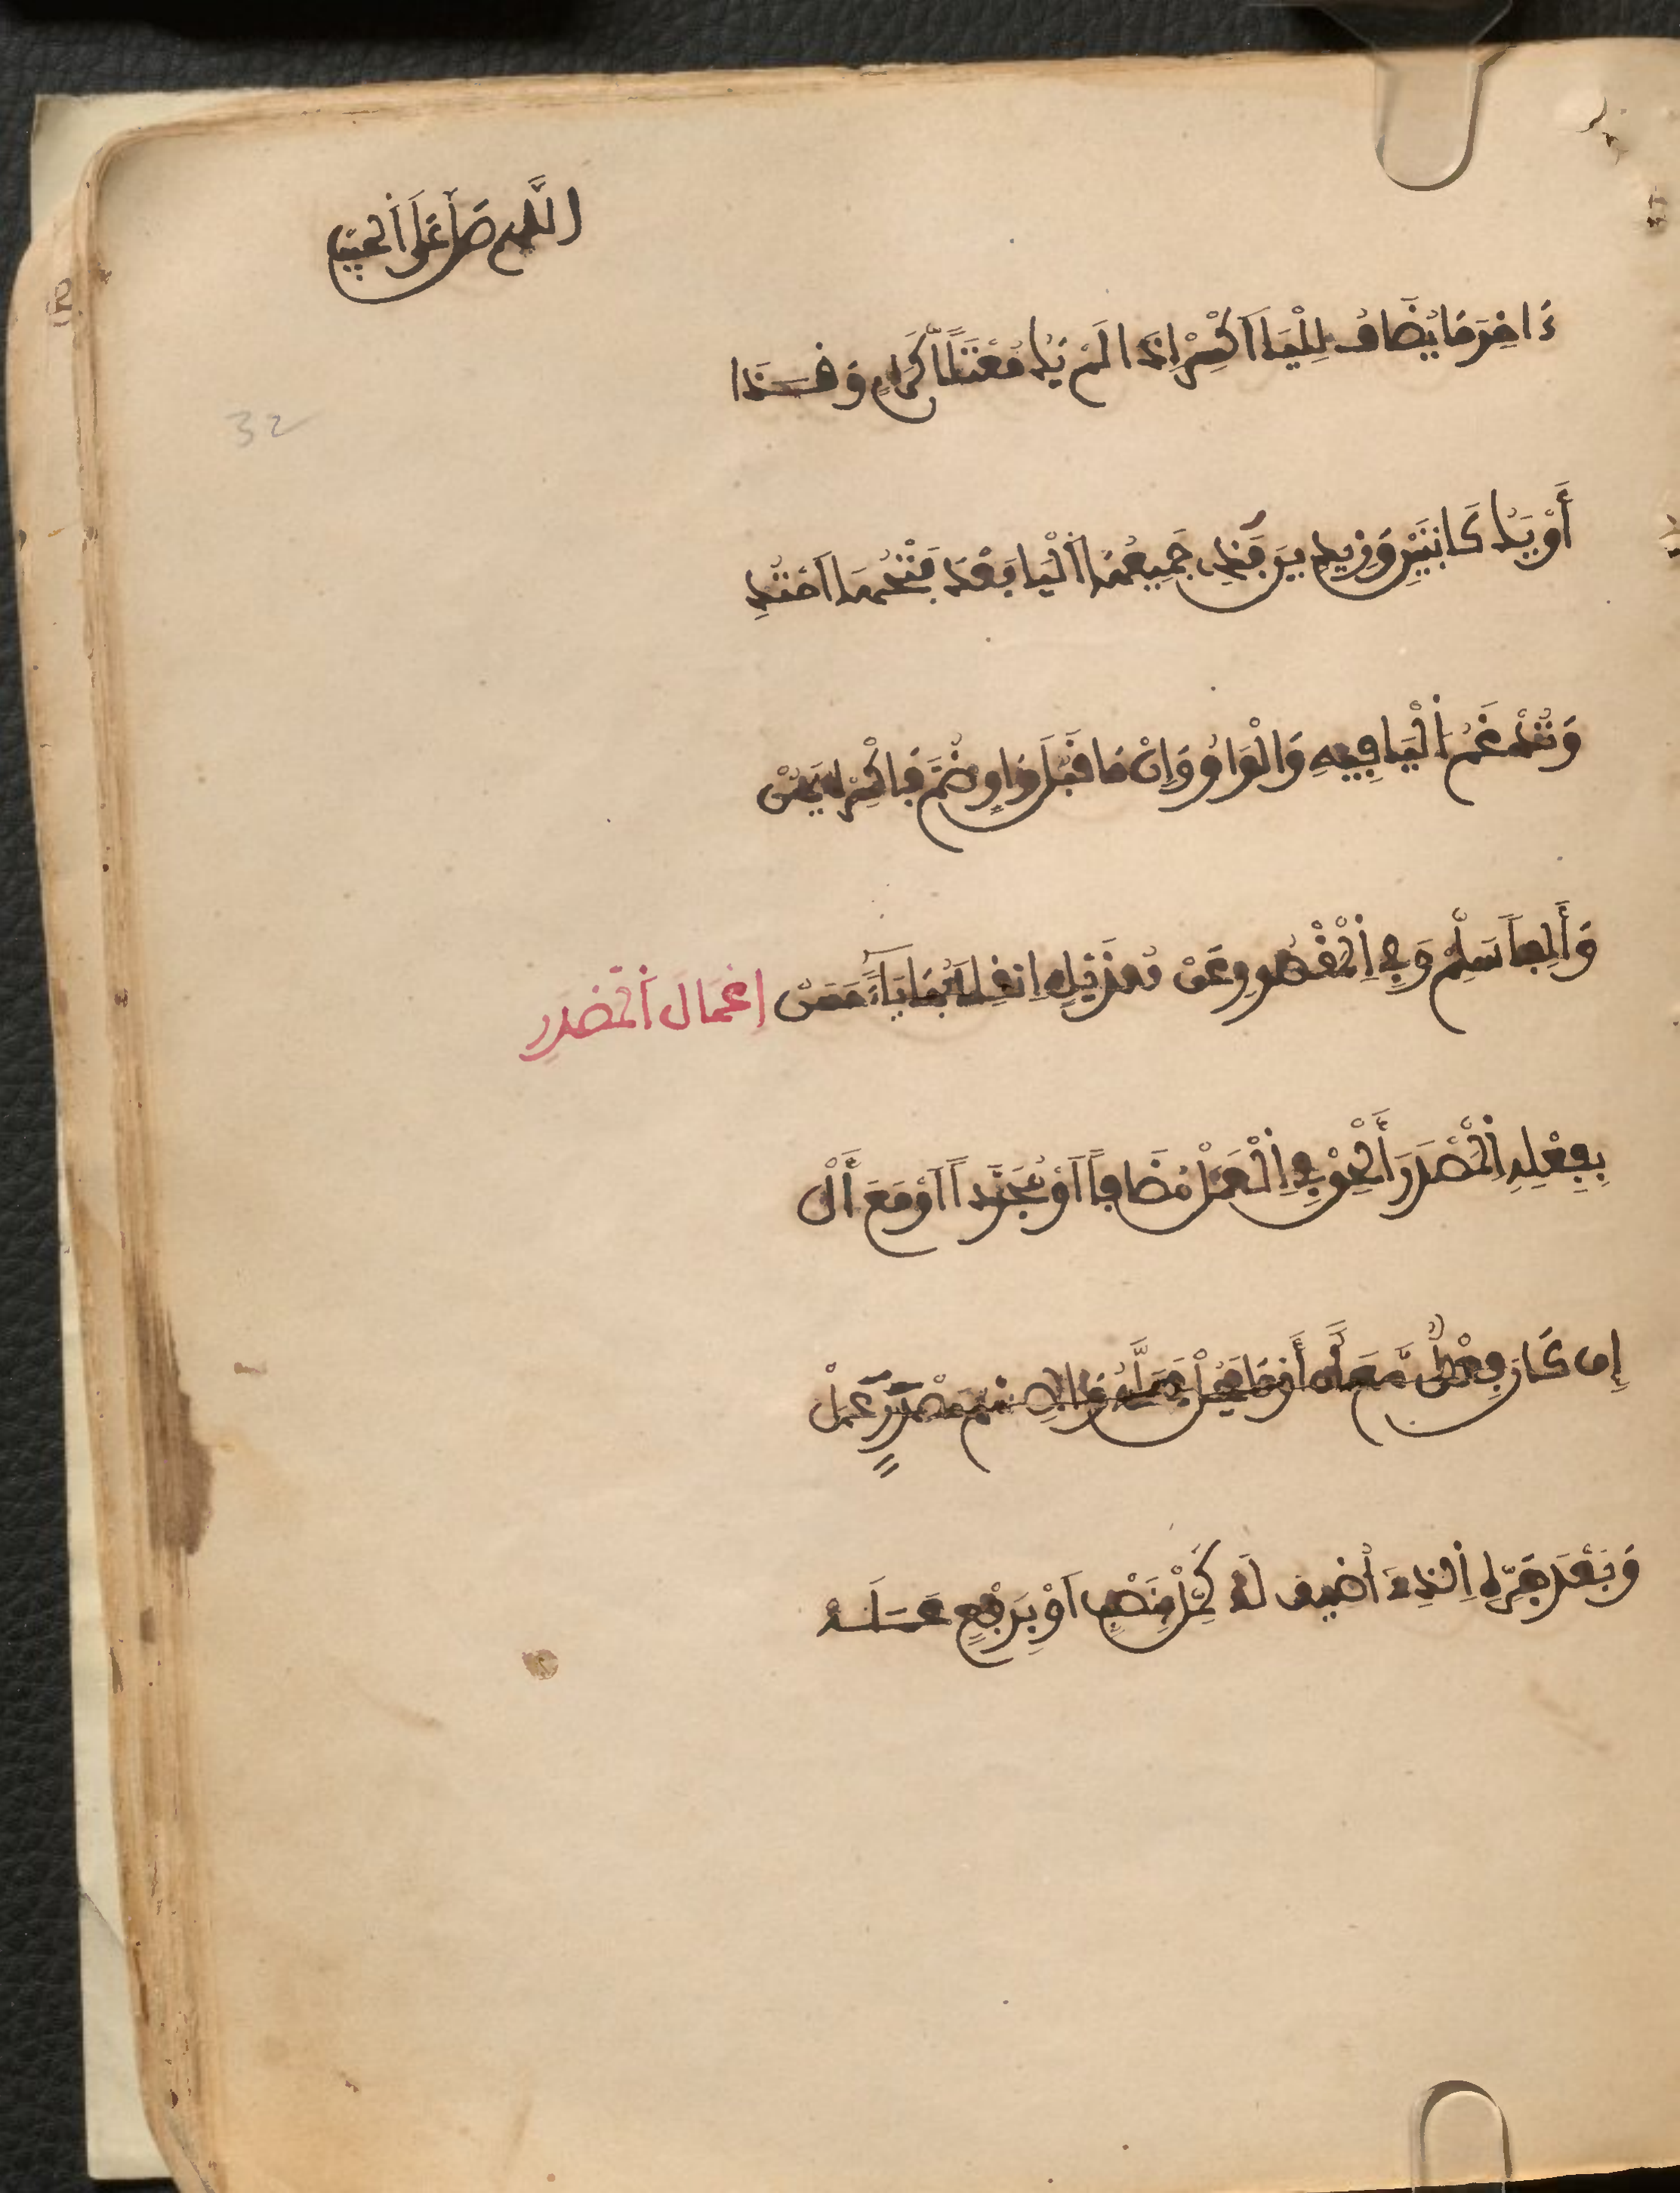 اللهم صل على الحبيب
ءَاخِرَ مَا يُضَافُ لِلْيَا اَكْسِرْ اِذَا لَمْ يَكُ مُعْتَلًّا كَرَامٍ وَقَذَا
32
أَوْ يَكُ كَابْنَيْنِ وَزَيْدِينَ فَذِي جَمِيعُهَا اَلْيَا بَعْدُ فَتْحُهَا اَحْتُذِي
وَتُدْغَمُ اَلْيَا فِيهِ وَالْوَاوُ وَإِنْ مَا قَبْلَ وَاوٍ ضُمَّ فَاكْسِرْهُ يَهُنْ
وَأَلِفاً سَلِّمْ وَفِي اِلْمَقْصُورِ عَنْ هُذَيْلٍ اِنْقِلَابُهَا يَاءً حَسَنْ إعْمَال اَلْمَصْدَر
بِفِعْلِهِ اِلْمَصْدَرَ أَلْحِقْ فِي اِلْعَمَلْ مُضَافاً اَوْ مُجَرَّداً اَوْ مَعَ أَلْ
إِن كَانَ فِعْلٌ مَّعَ أَن أَوْ مَا يَحُلْ مَحَلَّهُ وَلِاسْمِ مَصْدَرٍ عَمَلْ
وَبَعْدَ جَرِّهِ اِلذِي أُضِيفَ لَهْ كَمِّلْ بِنَصْبٍ اَوْ بِرَفْعٍ عَمَلَهْ